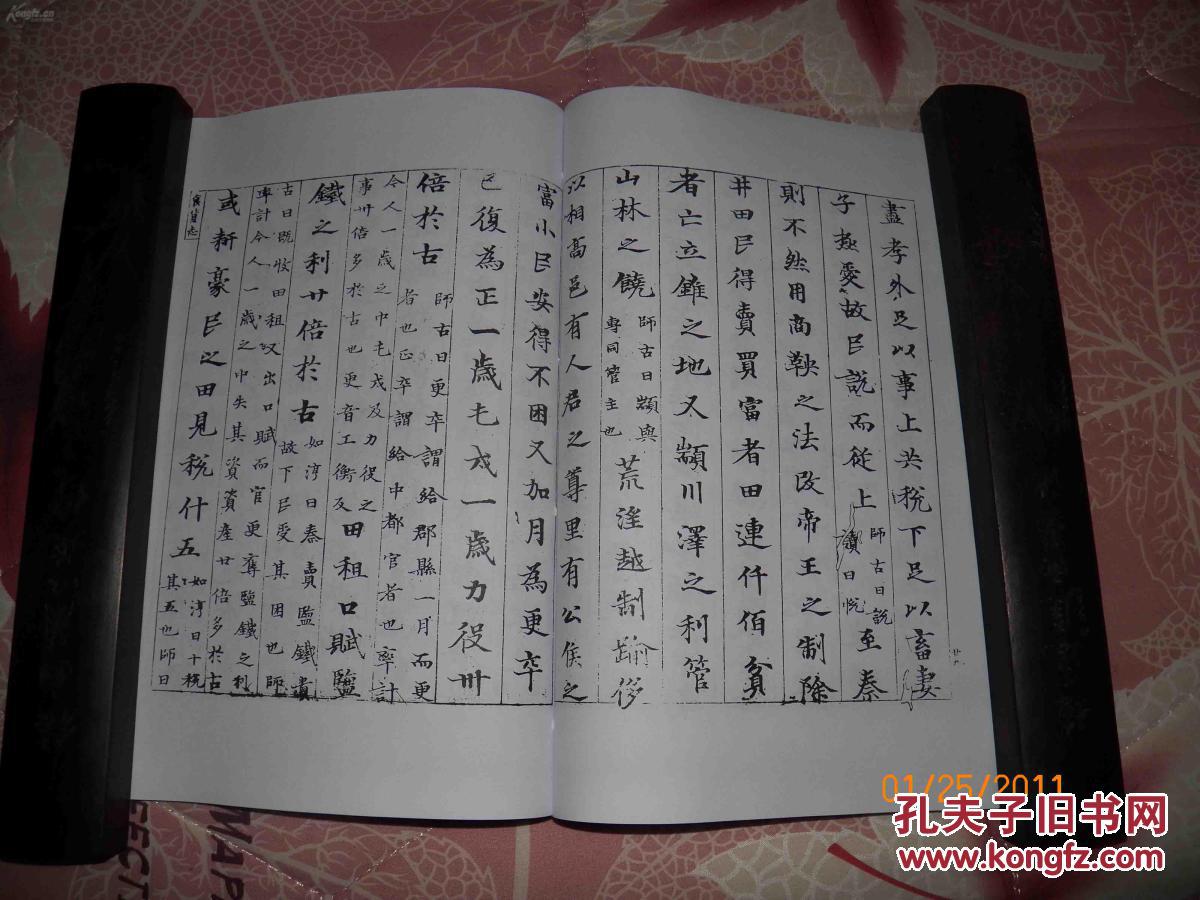 盡孝外足以事上共稅下足以畜妻
子極愛故民説而從上師古曰説
讀曰悦至秦
則不然用商鞅之法改帝王之制除
井田民得賣買富者田連仟佰貧
者亡立錐之地又顓川澤之利管
山林之饒師古曰顓與
專同管主也荒淫越制踰侈
以相高邑有人君之尊里有公侯之
富小民安得不困又加月為更卒
已復為正一歲屯戍一歲力役卅
倍於古師古曰更卒謂給郡縣一月而更
者也正卒謂給中都官者也率計
今人一歲之中屯戍及力役之
事卅倍多於古也更音工衡反田租口賦鹽
鐵之利廿倍於古如淳曰秦賣鹽鐵貴
故下民受其困也師
古曰既收田租又出口賦而官更奪鹽鐵之利
率計今人一歲之中失其資産廿倍多於古
或耕豪民之田見稅什五如淳曰十稅
其五也師曰
食貨志
廿六
01/25/2011
孔夫子旧书网
www.kongfz.com
Kongfz.cn